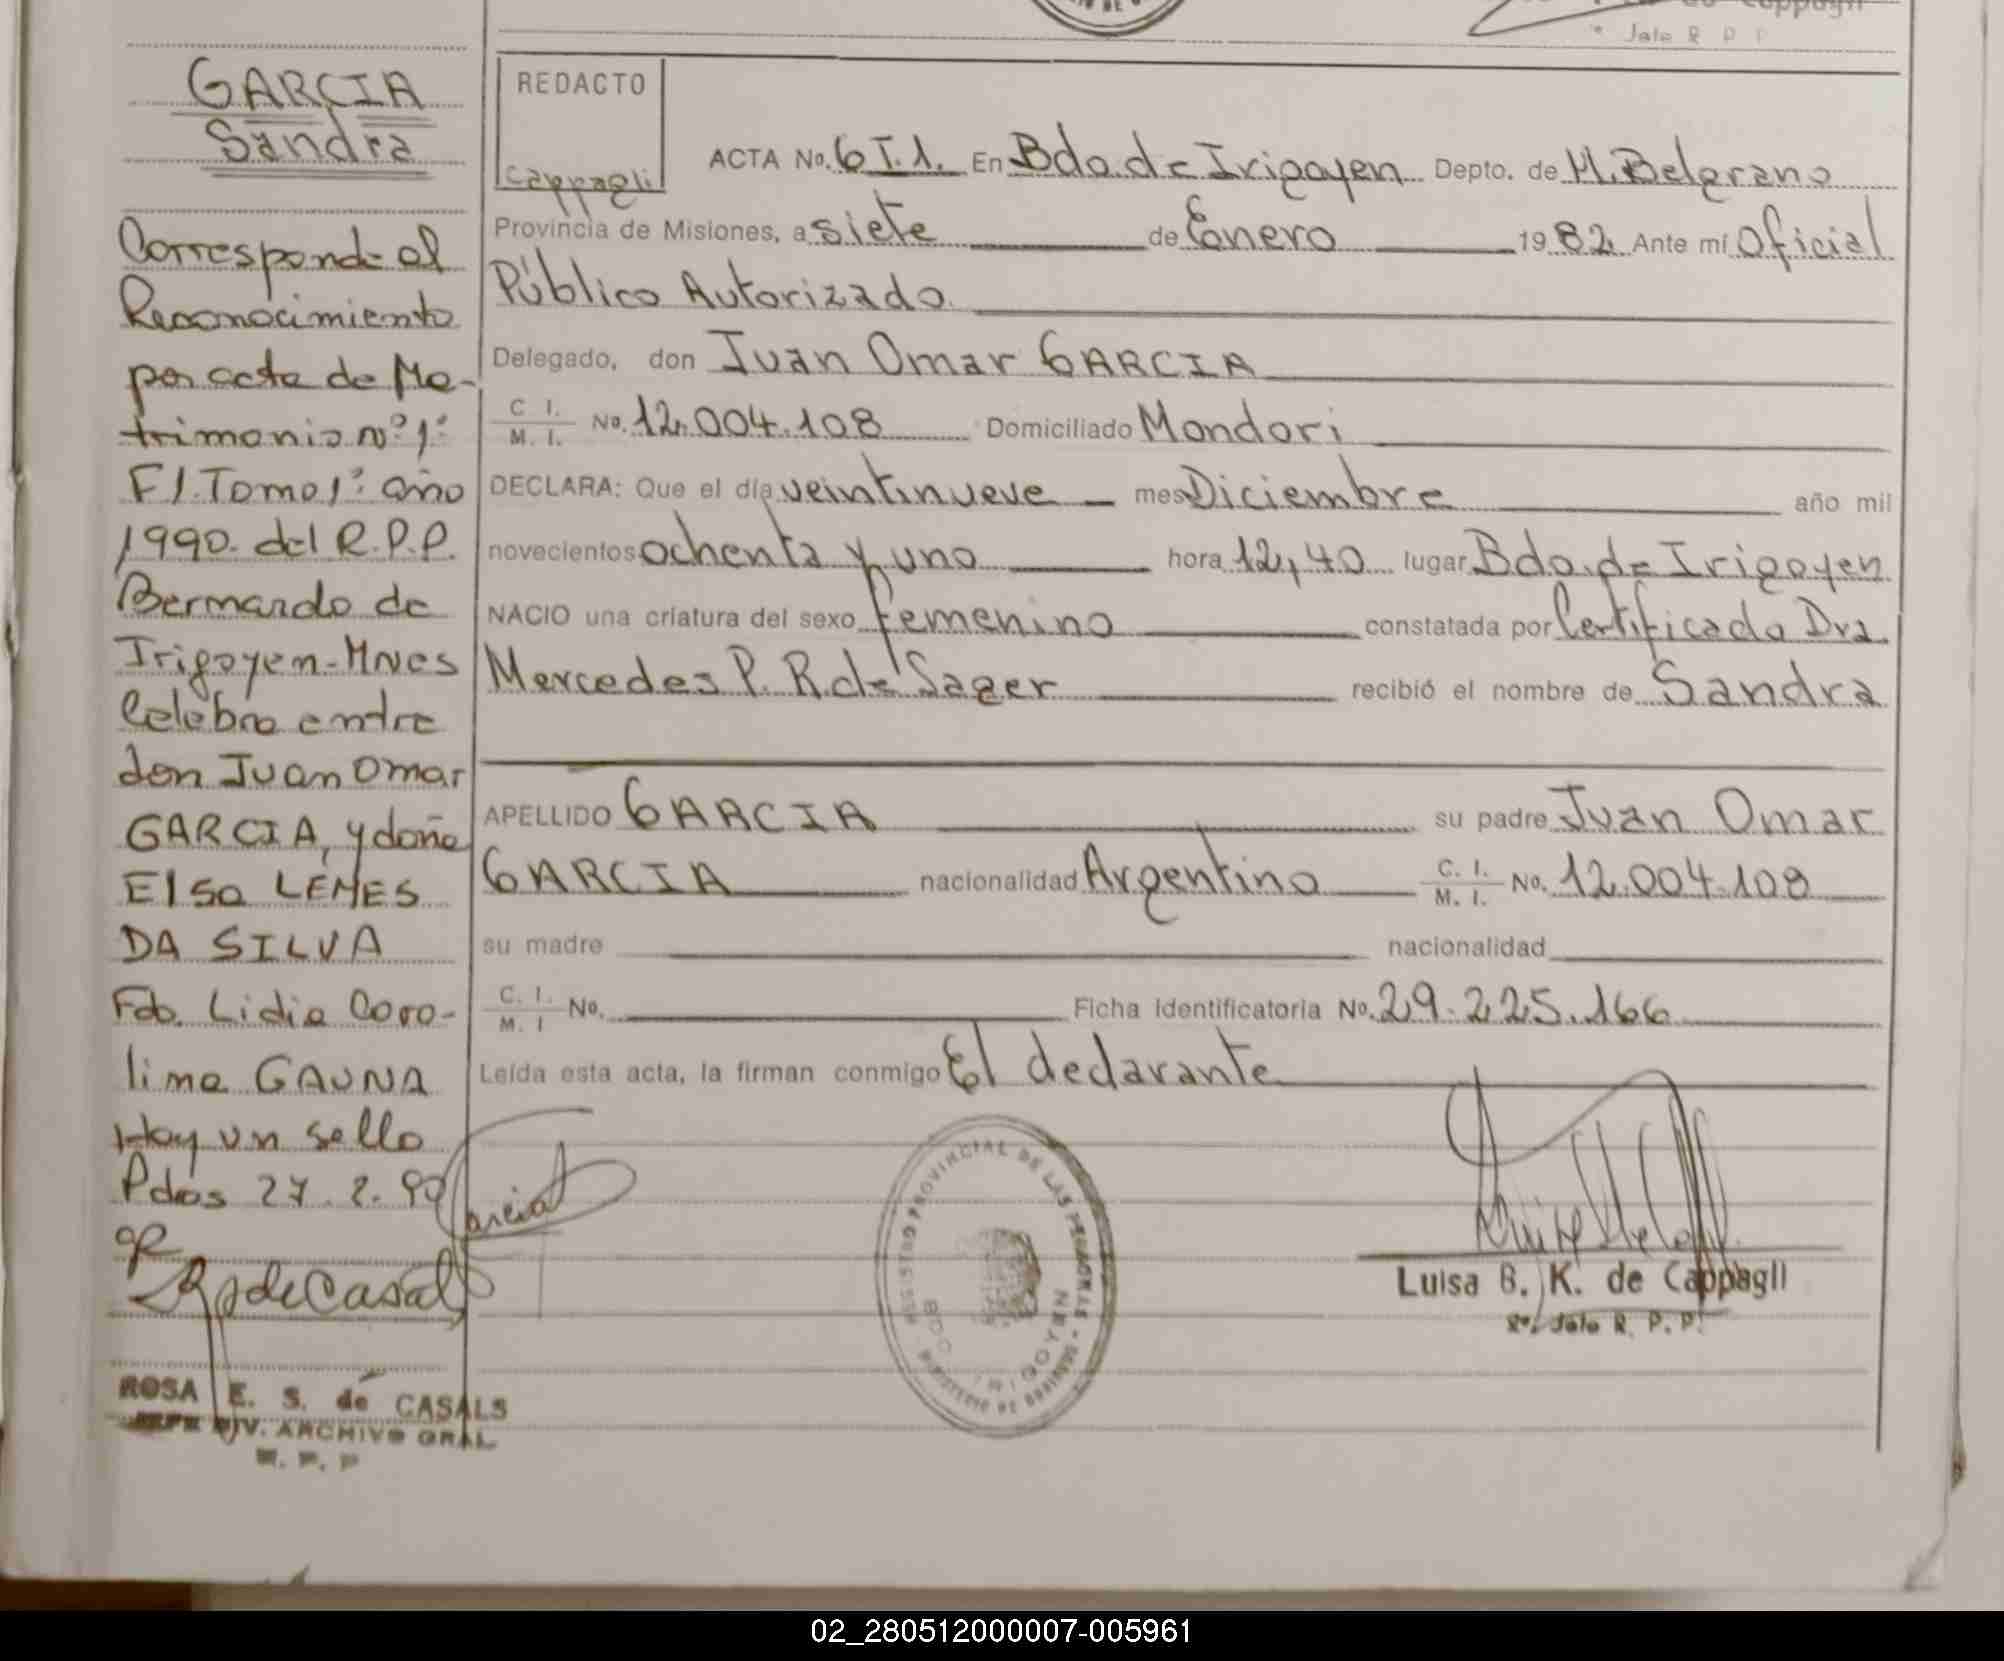 GARCIA
Sandra
Corresponde al
Reconocimiento
por acta de Ma-
trimonio nº 1º
F1. Tomo 1º año
1990. del R.P.P.
Bernardo de
Irigoyen-Mnes
Celebro entre
don Juan Omar
GARCIA, y doña
Elsa LEMES
DA SILVA
Fdo. Lidia Caro-
lina GAUNA
Hay un sello
Pdas 27.2.90
RS de Casals
ROSA E. S. de CASALS
JEFE DIV. ARCHIVO GRAL.
R. P. P
Jefe R P P
REDACTO
Cappagli
ACTA No. 6 T.1. En Bdo. de Irigoyen Depto. de M. Belgrano
Provincia de Misiones, a siete de Enero 1982 Ante mí Oficial
Público Autorizado
Delegado, don Juan Omar GARCIA
C. I. / M. I. No. 12.004.108 Domiciliado Mondori
DECLARA: Que el día veintinueve mes Diciembre año mil
novecientos ochenta y uno hora 12,40 lugar Bdo. de Irigoyen
NACIO una criatura del sexo femenino constatada por Certificado Dra.
Mercedes P. R. de Sager recibió el nombre de Sandra
APELLIDO GARCIA su padre Juan Omar
GARCIA nacionalidad Argentino C. I. / M. I. No. 12.004.108
su madre nacionalidad
C. I. / M. I No. Ficha Identificatoria No. 29.225.166
Leída esta acta, la firman conmigo El declarante
Garcia
REGISTRO PROVINCIAL DE LAS PERSONAS - MINISTERIO DE GOBIERNO
BDO. IRIGOYEN
Luisa B. K. de Cappagli
Jefe R. P. P.
02_280512000007-005961